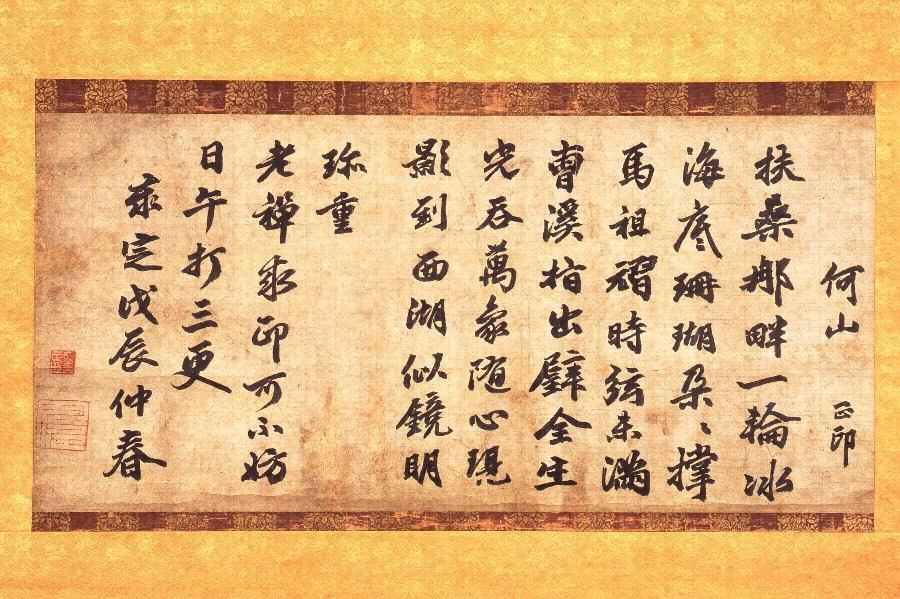 何山 正印
扶桑那畔一輪冰
海底珊瑚朶〻撑
馬祖時弦未滿
曹溪指出璧全生
光吞萬象随心現
影到西湖似鏡明
珎重
老禪求印可不妨
日午打三更
定戊辰仲春